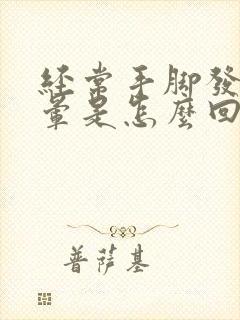 經常手腳發
暈是怎麼回
普薩基